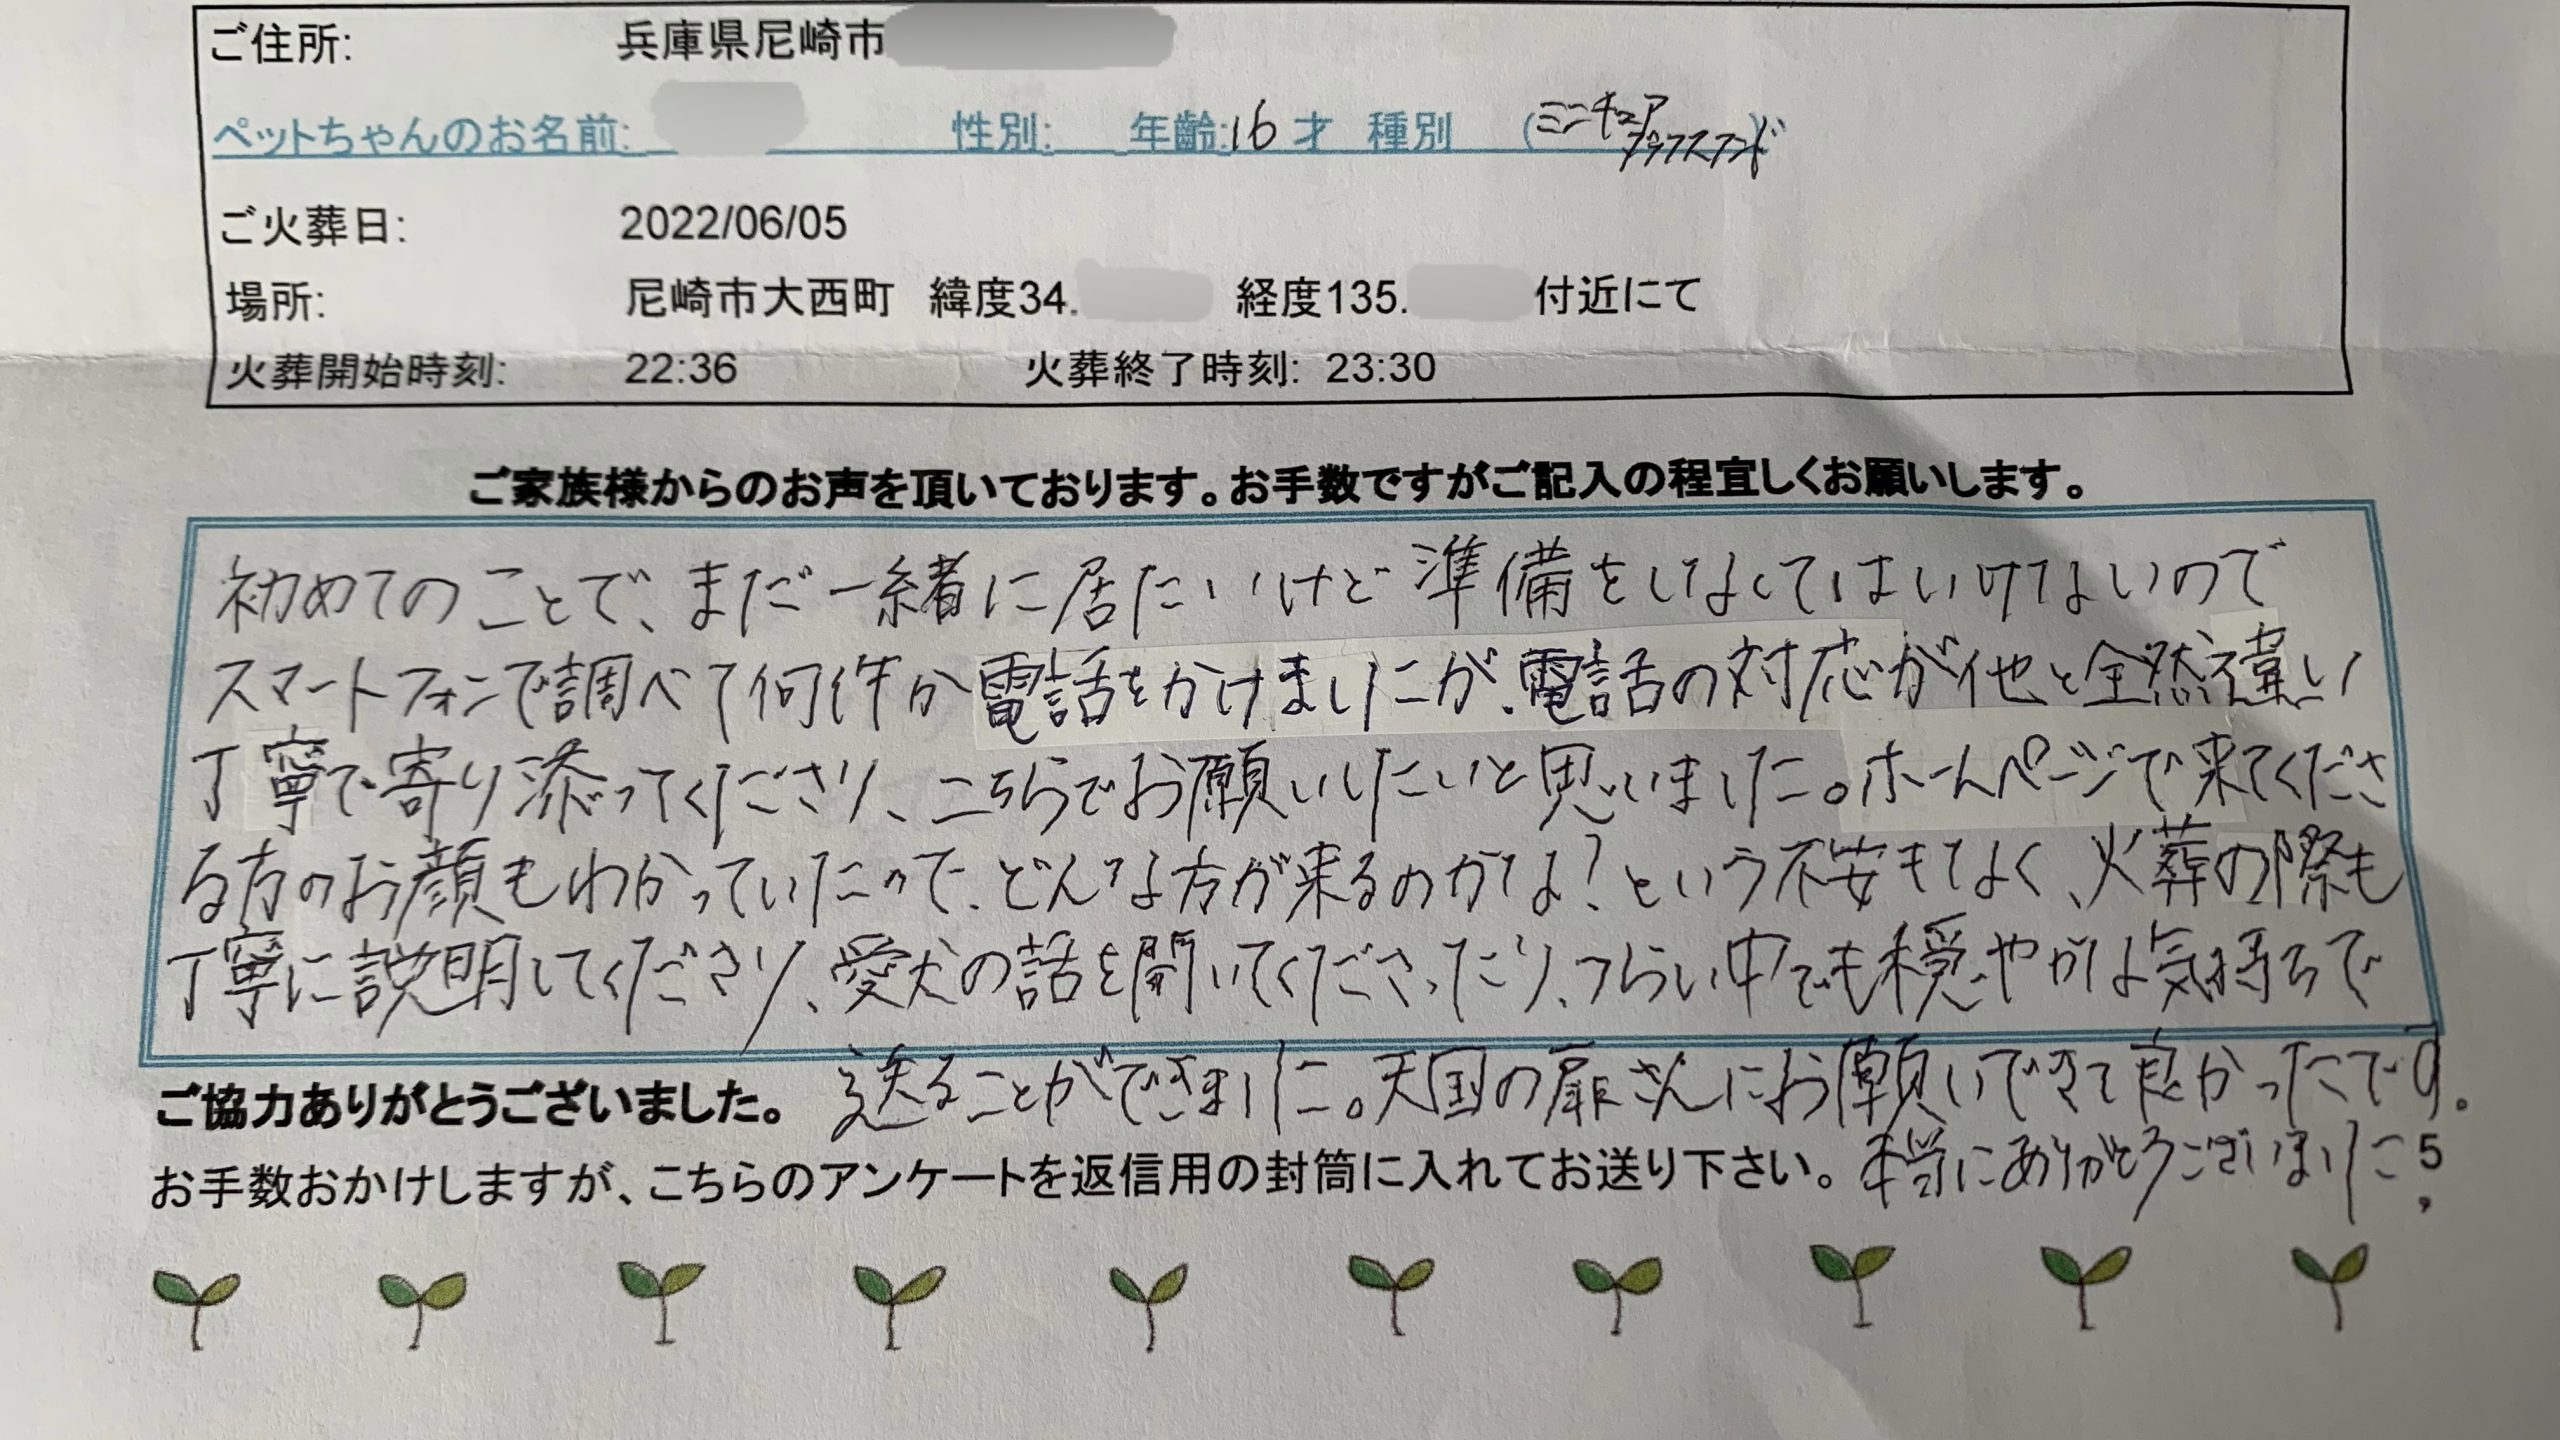 ご住所: 兵庫県尼崎市
ペットちゃんのお名前: 性別: 年齢:16才 種別 (ミニチュアダックスフンド)
ご火葬日: 2022/06/05
場所: 尼崎市大西町 緯度34. 経度135. 付近にて
火葬開始時刻: 22:36 火葬終了時刻: 23:30
ご家族様からのお声を頂いております。お手数ですがご記入の程宜しくお願いします。
初めてのことで、まだ一緒に居たいけど準備をしなくてはいけないので
スマートフォンで調べて何件か電話をかけましたが、電話の対応が他と全然違い
丁寧で寄り添ってくださり、こちらでお願いしたいと思いました。ホームページで来てくださ
る方のお顔もわかっていたので、どんな方が来るのかな?という不安もなく、火葬の際も
丁寧に説明してくださり、愛犬の話を聞いてくださったり、つらい中でも穏やかな気持ちで
送ることができました。天国の扉さんにお願いできて良かったです。
ご協力ありがとうございました。
お手数おかけしますが、こちらのアンケートを返信用の封筒に入れてお送り下さい。 本当にありがとうございました。
5